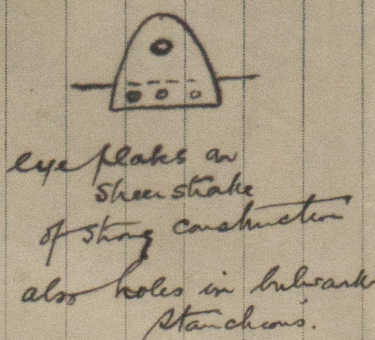 eye plates on
sheer strake
of strong construction
also holes in bulwark
stanchions.